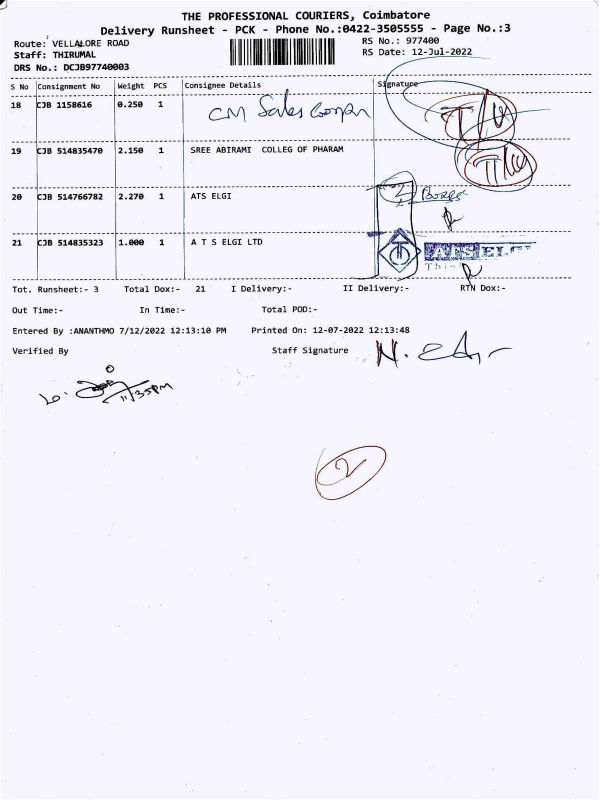 THE PROFESSIONAL COURIERS, Coimbatore
Delivery Runsheet - PCK - Phone No.:0422-3505555 - Page No.:3
Route: VELLALORE ROAD RS No.: 977400
Staff: THIRUMAL RS Date: 12-Jul-2022
DRS No.: DCJB97740003
S No Consignment No Weight PCS Consignee Details Signature
18 CJB 1158616 0.250 1 CM Sales
19 CJB 514835470 2.150 1 SREE ABIRAMI COLLEG OF PHARAM
20 CJB 514766782 2.270 1 ATS ELGI 2
21 CJB 514835323 1.000 1 A T S ELGI LTD ATS ELGI
Tot. Runsheet:- 3 Total Dox:- 21 I Delivery:- II Delivery:- RTN Dox:-
Out Time:- In Time:- Total POD:-
Entered By :ANANTHMO 7/12/2022 12:13:10 PM Printed On: 12-07-2022 12:13:48
Verified By Staff Signature
11/35PM
2